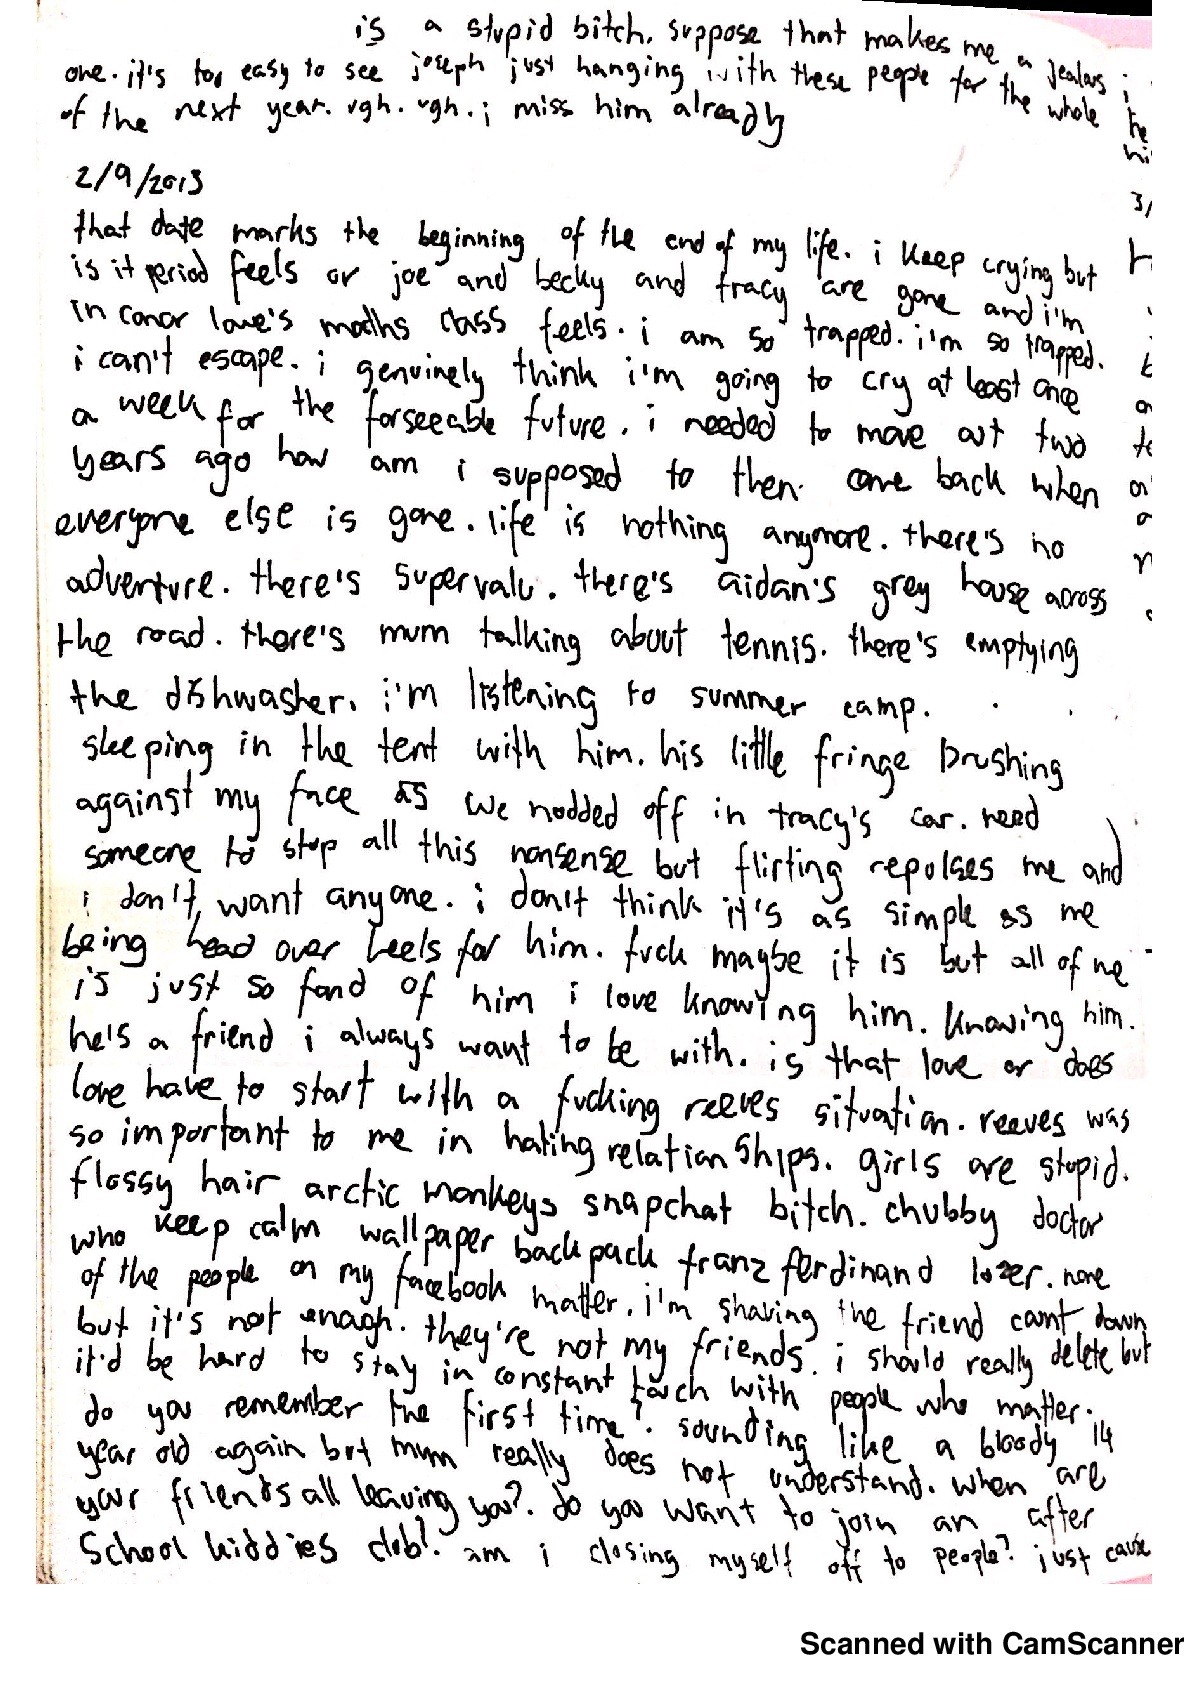 is a stupid bitch. suppose that makes me a jealous
one. it's too easy to see joseph just hanging with these people for the whole
of the next year. ugh. ugh. i miss him already
2/9/2013
that date marks the beginning of the end of my life. i keep crying but
is it period feels or joe and becky and tracy are gone and i'm
in conor love's maths class feels. i am so trapped. i'm so trapped.
i can't escape. i genuinely think i'm going to cry at least once
a week for the forseeable future. i needed to move out two
years ago how am i supposed to then come back when
everyone else is gone. life is nothing anymore. there's no
adventure. there's supervalu. there's aidan's grey house across
the road. there's mum talking about tennis. there's emptying
the dishwasher. i'm listening to summer camp.
sleeping in the tent with him. his little fringe brushing
against my face as we nodded off in tracy's car. need
someone to stop all this nonsense but flirting repulses me and
i don't want anyone. i don't think it's as simple as me
being head over heels for him. fuck maybe it is but all of me
is just so fond of him i love knowing him. knowing him.
he's a friend i always want to be with. is that love or does
love have to start with a fucking reeves situation. reeves was
so important to me in hating relationships. girls are stupid.
flossy hair arctic monkeys snapchat bitch. chubby doctor
who keep calm wallpaper backpack franz ferdinand loser. none
of the people on my facebook matter. i'm shaving the friend count down
but it's not enough. they're not my friends. i should really delete but
it'd be hard to stay in constant touch with people who matter.
do you remember the first time?. sounding like a bloody 14
year old again but mum really does not understand. when are
your friends all leaving you?. do you want to join an after
school kiddies club?. am i closing myself off to people? just cause
3/
Scanned with CamScanner